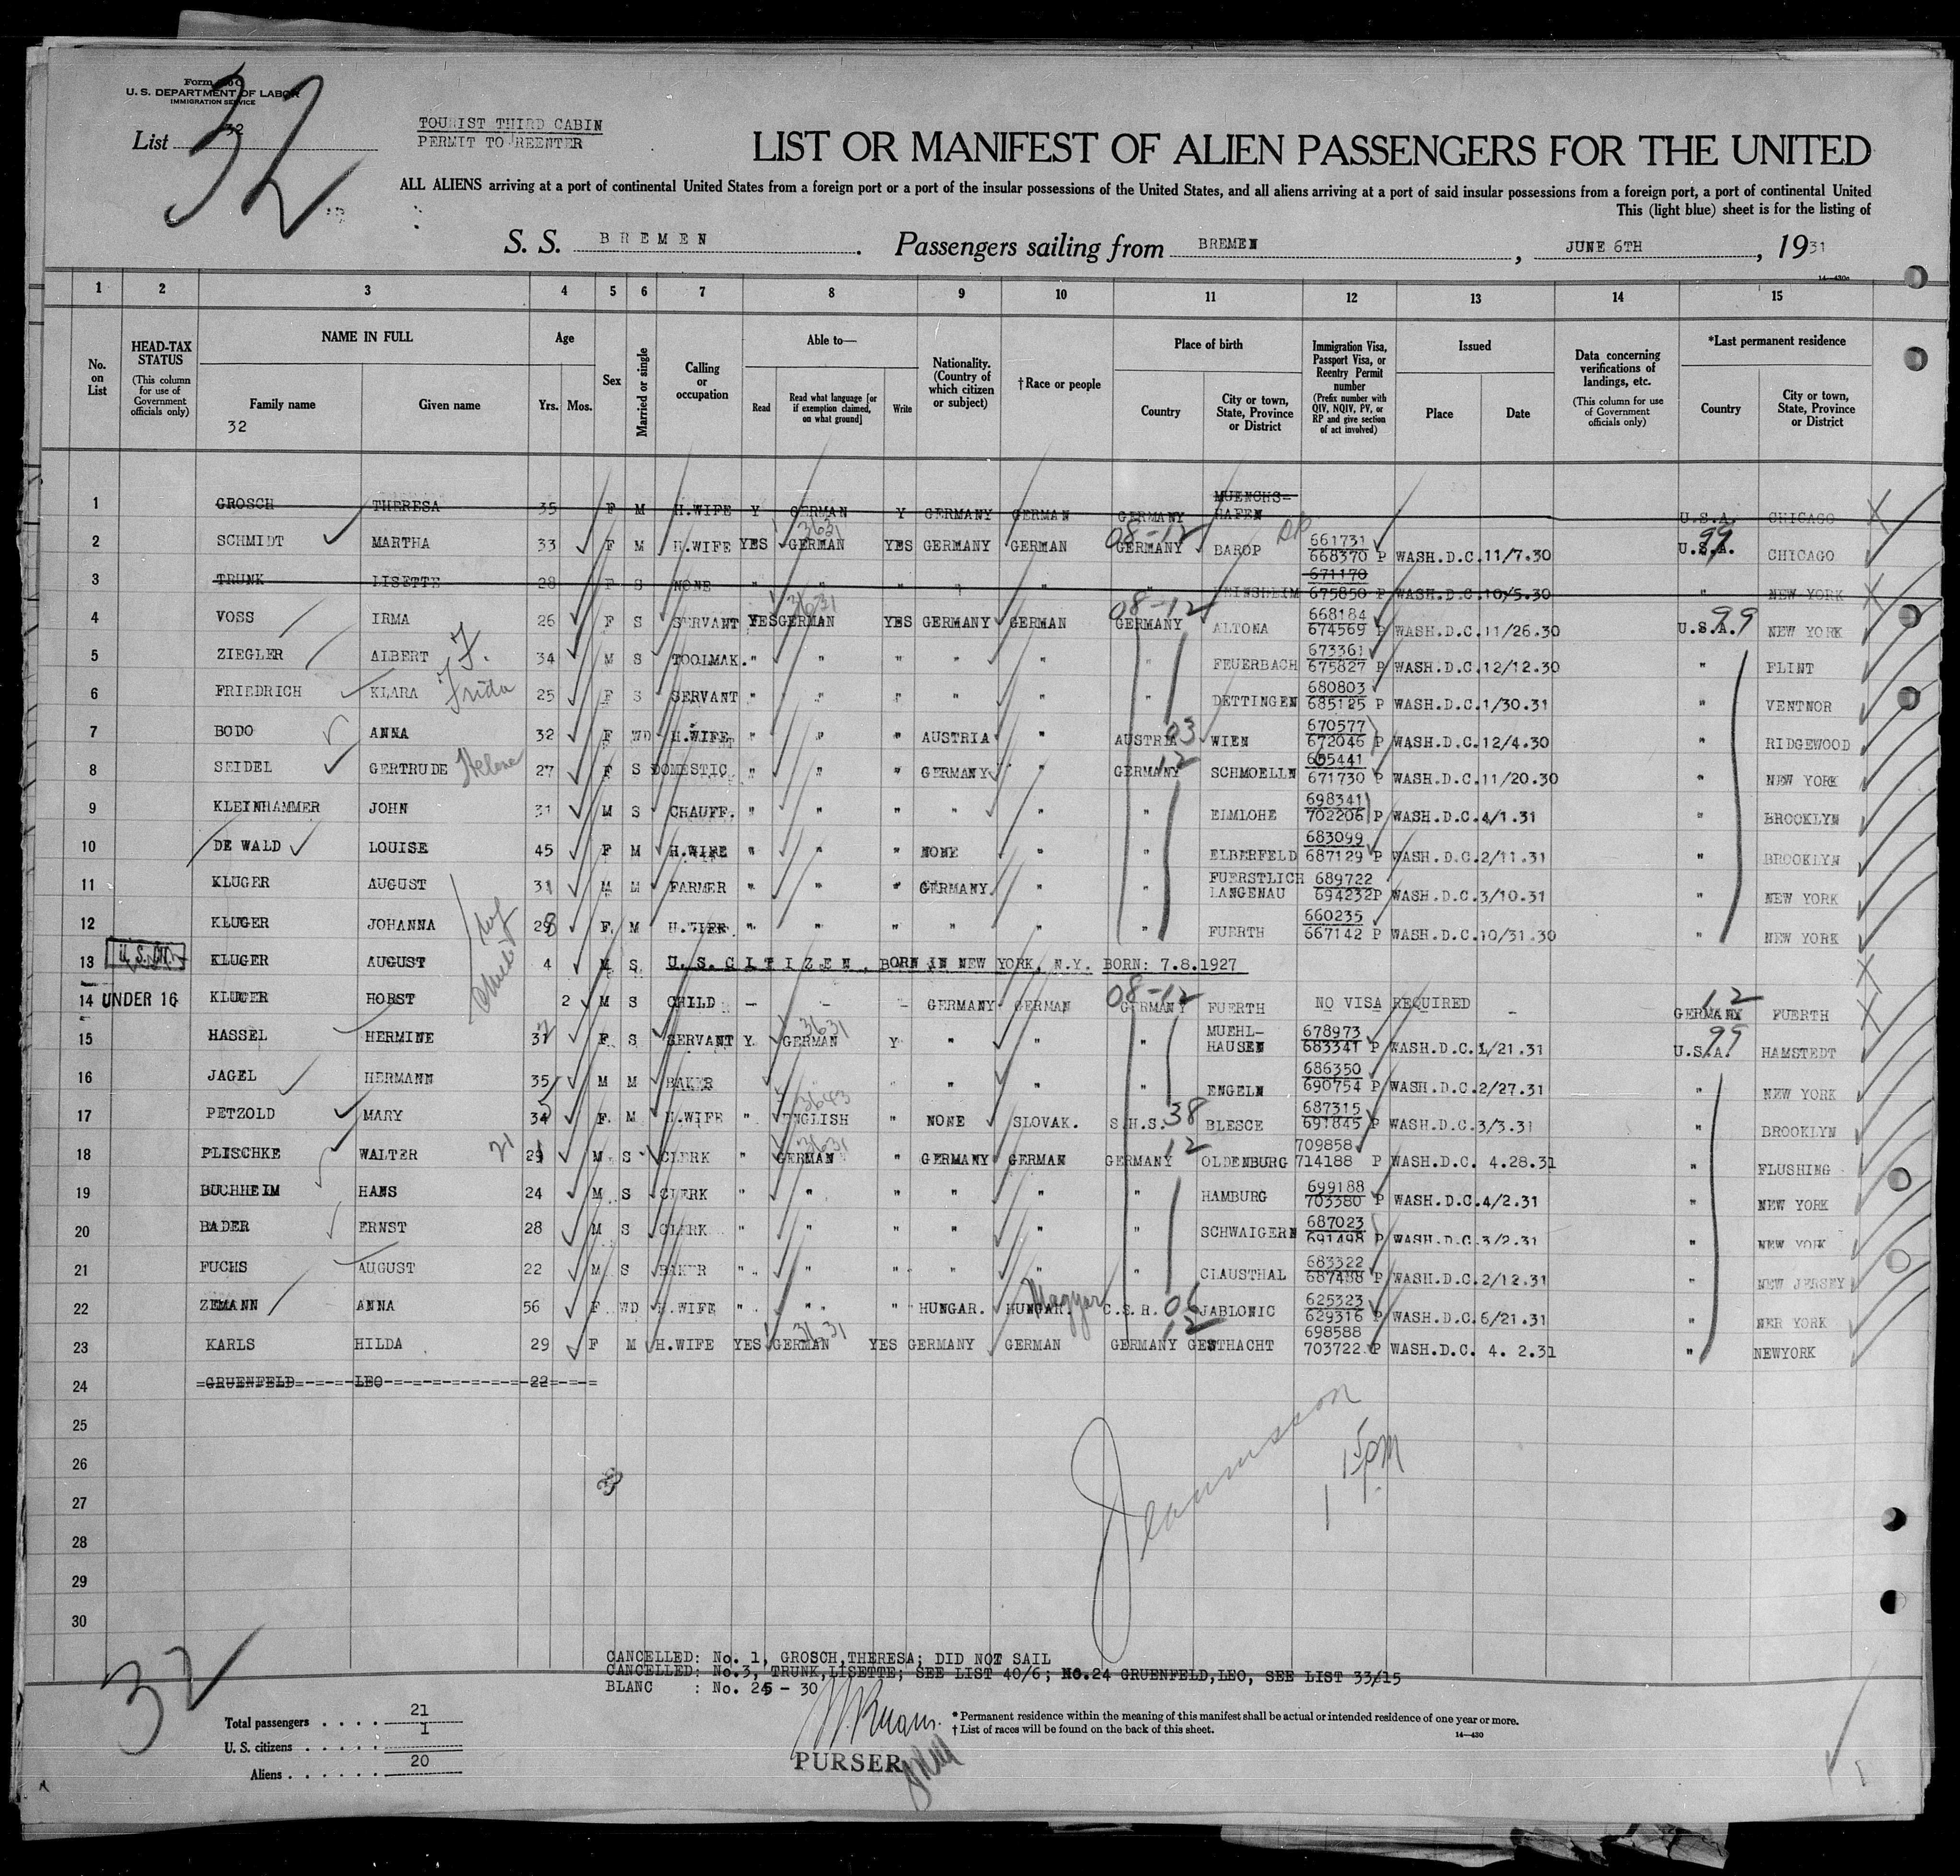 Form 500
U. S. DEPARTMENT OF LABOR
IMMIGRATION SERVICE
List 32
32
TOURIST THIRD CABIN
PERMIT TO REENTER
LIST OR MANIFEST OF ALIEN PASSENGERS FOR THE UNITED
ALL ALIENS arriving at a port of continental United States from a foreign port or a port of the insular possessions of the United States, and all aliens arriving at a port of said insular possessions from a foreign port, a port of continental United
This (light blue) sheet is for the listing of
S. S. BREMEN. Passengers sailing from BREMEN, JUNE 6TH, 1931
14—430a
1 2 3 4 5 6 7 8 9 10 11 12 13 14 15
No. on List
HEAD-TAX STATUS
(This column for use of Government officials only)
NAME IN FULL
Family name
Given name
32
Age
Yrs. Mos.
Sex
Married or single
Calling or occupation
Able to—
Read
Read what language [or if exemption claimed, on what ground]
Write
Nationality. (Country of which citizen or subject)
†Race or people
Place of birth
Country
City or town, State, Province or District
Immigration Visa, Passport Visa, or Reentry Permit number
(Prefix number with QIV, NQIV, PV, or RP and give section of act involved)
Issued
Place
Date
Data concerning verifications of landings, etc.
(This column for use of Government officials only)
*Last permanent residence
Country
City or town, State, Province or District
1 GROSCH THERESA 35 F M H.WIFE Y GERMAN Y GERMANY GERMAN GERMANY MUENCHS=HAFEN U.S.A. CHICAGO
2 SCHMIDT MARTHA 33 F M H.WIFE YES GERMAN 3631 YES GERMANY GERMAN GERMANY 08-12 BAROP 661731 668370 P WASH.D.C. 11/7.30 U.S.A. 99 CHICAGO
3 TRUNK LISETTE 28 F S NONE " " " " " " 671170 675850 P WASH.D.C. 10/5.30 " NEW YORK
4 VOSS IRMA 26 F S SERVANT YES GERMAN 3631 YES GERMANY GERMAN GERMANY 08-12 ALTONA 668184 674569 P WASH.D.C. 11/26.30 U.S.A. 99 NEW YORK
5 ZIEGLER ALBERT F. 34 M S TOOLMAK. " " " " " " FEUERBACH 673361 675827 P WASH.D.C. 12/12.30 " FLINT
6 FRIEDRICH KLARA Frida 25 F S SERVANT " " " " " " DETTINGEN 680803 685125 P WASH.D.C. 1/30.31 " VENTNOR
7 BODO ANNA 32 F WD H.WIFE " " " AUSTRIA " AUSTRIA 03 WIEN 670577 672046 P WASH.D.C. 12/4.30 " RIDGEWOOD
8 SEIDEL GERTRUDE Helene 27 F S DOMESTIC " " " GERMANY " GERMANY 12 SCHMOELLN 665441 671730 P WASH.D.C. 11/20.30 " NEW YORK
9 KLEINHAMMER JOHN 31 M S CHAUFF. " " " " " " ELMLOHE 698341 702206 P WASH.D.C. 4/1.31 " BROOKLYN
10 DE WALD LOUISE 45 F M H.WIFE " " " NONE " " ELBERFELD 683099 687129 P WASH.D.C. 2/11.31 " BROOKLYN
11 KLUGER AUGUST 31 M M FARMER " " " GERMANY " " FUERSTLICH LANGENAU 689722 694232 P WASH.D.C. 3/10.31 " NEW YORK
12 KLUGER JOHANNA 28 F M H.WIFE " " " " " " FUERTH 660235 667142 P WASH.D.C. 10/31.30 " NEW YORK
13 U.S. CIT. KLUGER AUGUST 4 M S U.S.CITIZEN, BORN IN NEW YORK, N.Y. BORN: 7.8.1927
14 UNDER 16 KLUGER HORST 2 M S CHILD - - - GERMANY GERMAN GERMANY 08-12 FUERTH NO VISA REQUIRED - GERMANY 12 FUERTH
15 HASSEL HERMINE 37 F S SERVANT Y GERMAN 3631 Y " " " MUEHL-HAUSEN 678973 683341 P WASH.D.C. 1/21.31 U.S.A. 99 HAMSTEDT
16 JAGEL HERMANN 35 M M BAKER " " " ENGELN 686350 690754 P WASH.D.C. 2/27.31 NEW YORK
17 PETZOLD MARY 34 F M H.WIFE " ENGLISH 3643 " NONE SLOVAK. S.H.S. 38 BLESCE 687315 691845 P WASH.D.C. 3/3.31 " BROOKLYN
18 PLISCHKE WALTER 21 29 M S CLERK " GERMAN 3631 " GERMANY GERMAN GERMANY 12 OLDENBURG 709858 714188 P WASH.D.C. 4.28.31 " FLUSHING
19 BUCHHEIM HANS 24 M S CLERK " " " " " " HAMBURG 699188 703380 P WASH.D.C. 4/2.31 " NEW YORK
20 BADER ERNST 28 M S CLERK " " " " " " SCHWAIGERN 687023 691498 P WASH.D.C. 3/2.31 " NEW YORK
21 FUCHS AUGUST 22 M S BAKER " " " " " " CLAUSTHAL 683322 687488 P WASH.D.C. 2/12.31 " NEW JERSEY
22 ZEMANN ANNA 56 F WD H.WIFE " " " HUNGAR. HUNGAR. Magyar C.S.R. 06 JABLONIC 625323 629316 P WASH.D.C. 6/21.31 " NER YORK
23 KARLS HILDA 29 F M H.WIFE YES GERMAN 3631 YES GERMANY GERMAN GERMANY 12 GESTHACHT 698588 703722 P WASH.D.C. 4. 2.31 " NEWYORK
24 GRUENFELD LEO 22
25
26
27
28
29
30
1 15 PM
CANCELLED: No. 1, GROSCH,THERESA; DID NOT SAIL
CANCELLED: No.3, TRUNK,LISETTE; SEE LIST 40/6; NO.24 GRUENFELD,LEO, SEE LIST 33/15
BLANC : No. 25 - 30
32
Total passengers . . . . 21
U. S. citizens . . . . . 1
Aliens . . . . . . 20
PURSER
* Permanent residence within the meaning of this manifest shall be actual or intended residence of one year or more.
† List of races will be found on the back of this sheet.
14—430